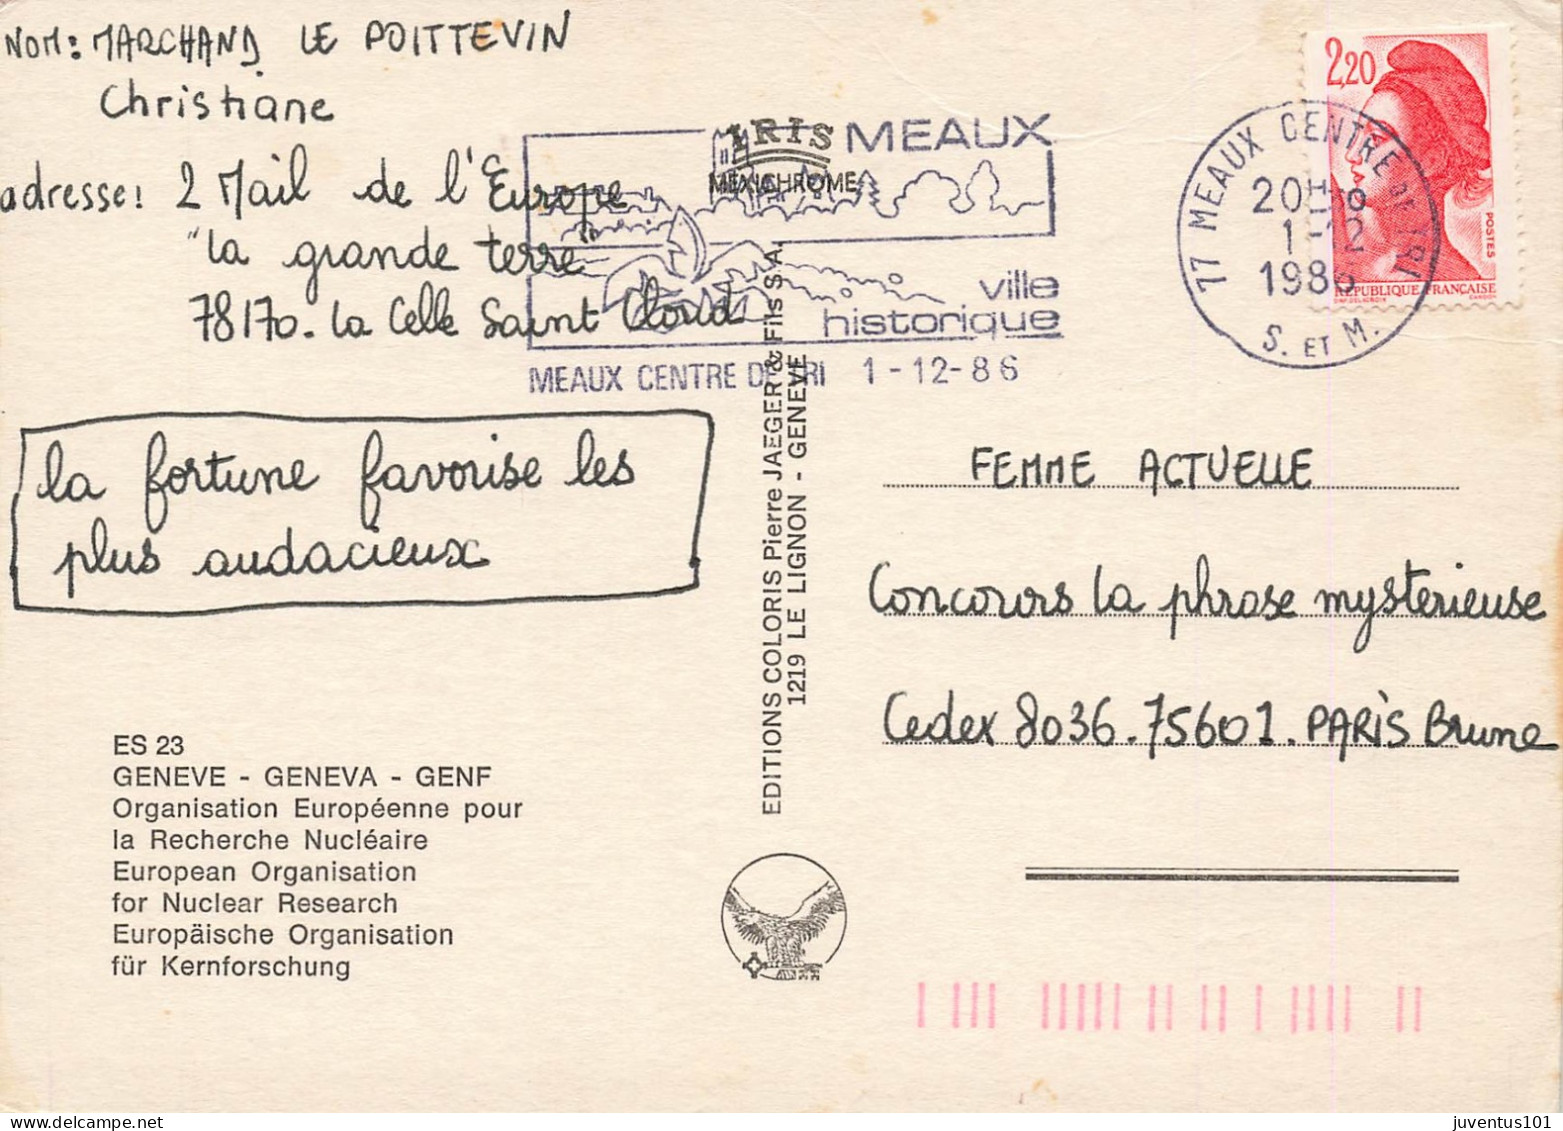 NOM: MARCHAND LE POITTEVIN
Christiane
adresse: 2 Mail de l'Europe
"la grande terre"
78170. La Celle Saint Cloud
la fortune favorise les
plus audacieux
ES 23
GENEVE - GENEVA - GENF
Organisation Européenne pour
la Recherche Nucléaire
European Organisation
for Nuclear Research
Europäische Organisation
für Kernforschung
IRIS
MEXICHROME
MEAUX
ville
historique
MEAUX CENTRE DE TRI 1-12-86
EDITIONS COLORIS Pierre JAEGER & Fils S.A.
1219 LE LIGNON - GENEVE
77 MEAUX CENTRE DE TRI
20H
1-12
1986
S. ET M.
2,20
POSTES
REPUBLIQUE FRANÇAISE
FEMME ACTUELLE
Concours la phrase mysterieuse
Cedex 8036.75601. PARIS Brune
juventus101